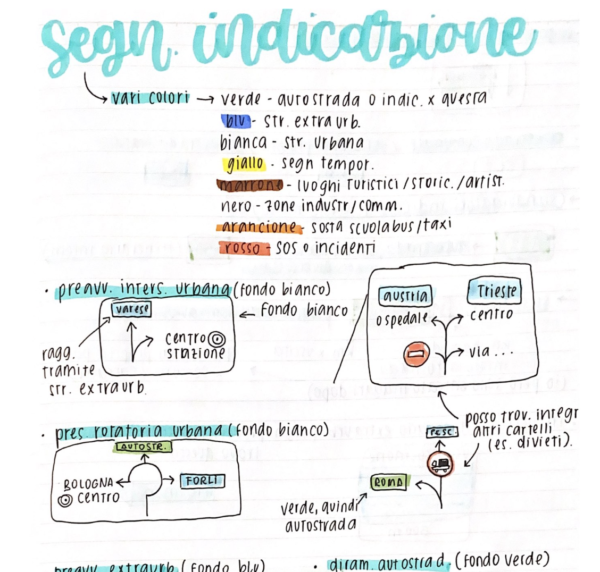 segn. indicazione
vari colori → verde - autostrada o indic. x questa
blu - str. extraurb.
bianca - str. urbana
giallo - segn tempor.
marrone - luoghi turistici/storic./artist.
nero - zone industr/comm.
arancione - sosta scuolabus/taxi
rosso - SOS o incidenti
• preavv. inters. urbana (fondo bianco)
varese
← fondo bianco
centro
stazione
ragg.
tramite
str. extraurb.
austria
Trieste
ospedale
centro
via ...
posso trov. integr
altri cartelli
(es. divieti).
• pres rotatoria urbana (fondo bianco)
autostr.
BOLOGNA
centro
FORLI
pesc.
ROMA
verde, quindi
autostrada
preavv. extraurb (fondo blu)
• diram. autostrad. (fondo verde)